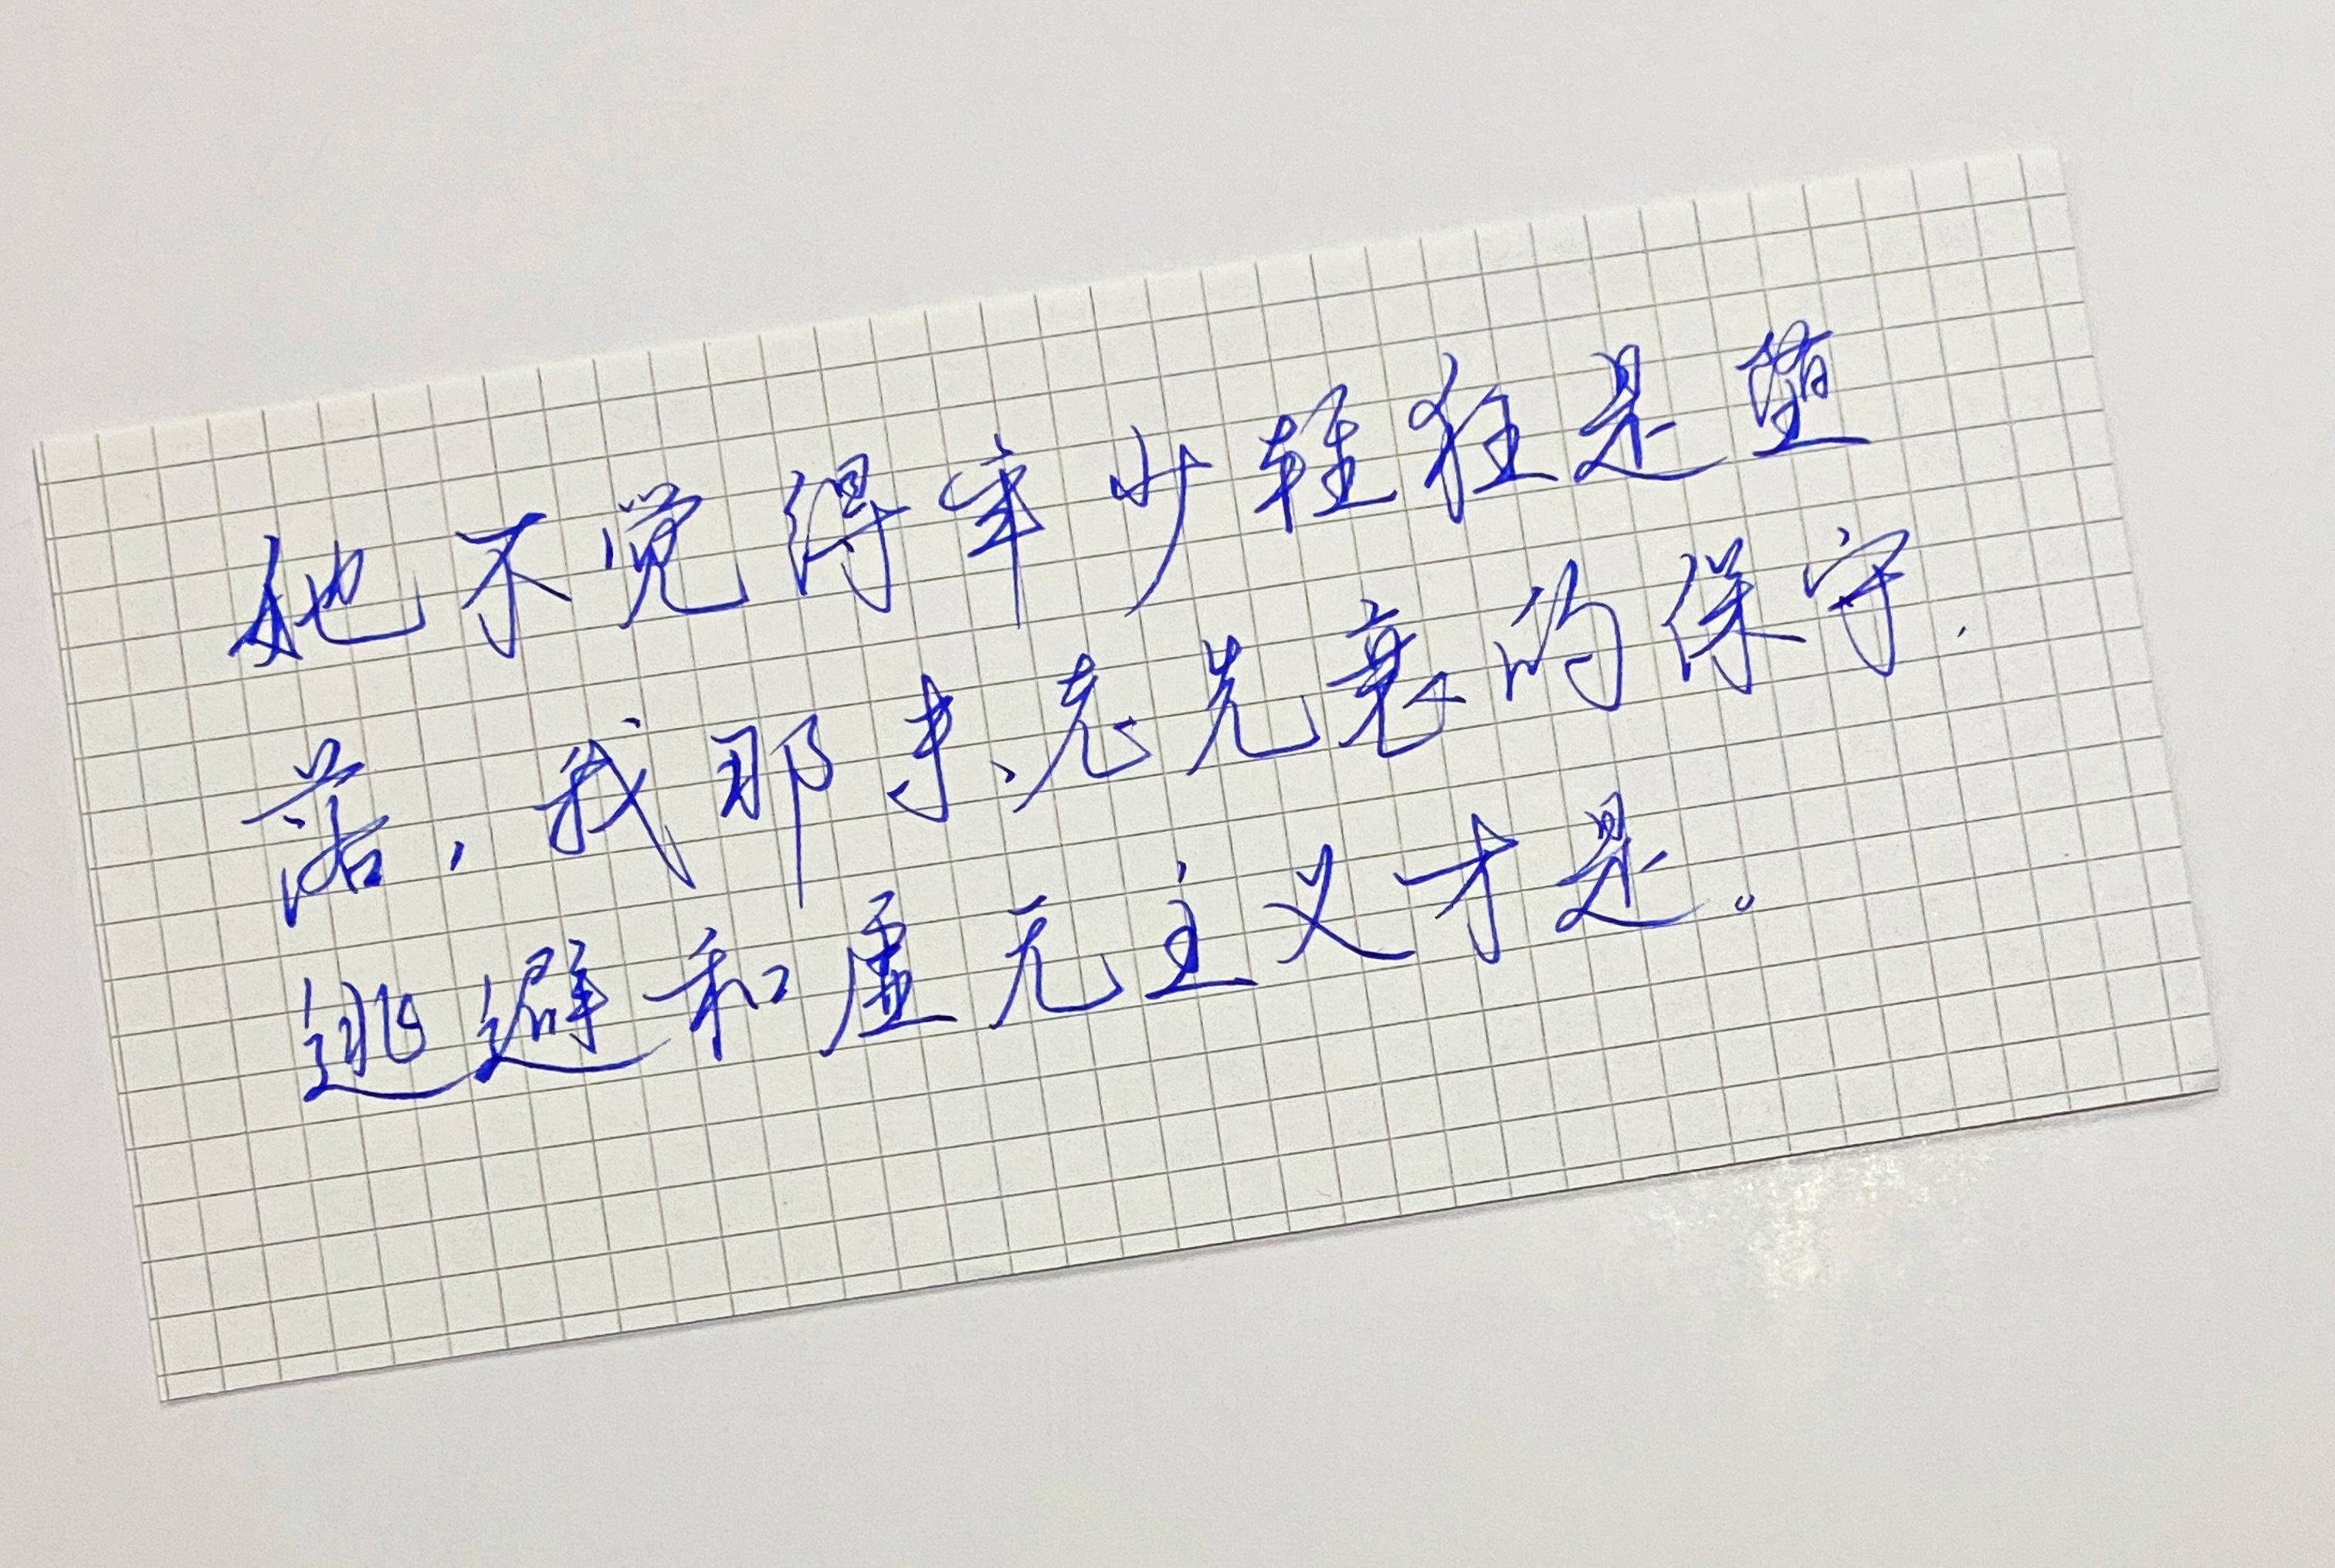 她不觉得年少轻狂是堕
落，我那未老先衰的保守、
逃避和虚无主义才是。